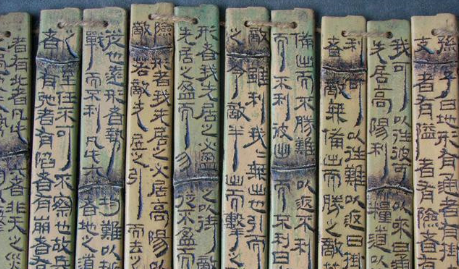 孫子曰地形有通者有掛
者有隘者有險者有
我可以往彼可以來曰通
先居高陽利糧道以
利可以往難以返曰掛
敵無備出而勝之敵
備出而不勝難以返不利
而不利彼出而不利曰
敵雖利我我無出也引而
令敵半出而擊之
形者我先居之必盈之以待
先居之盈而勿從不盈
險形者我先居之必居高陽以
敵若敵先居之引而去之
從也遠形者勢均
戰而不利凡此六者地之道
之至任不可不察也故兵
者有弛者有陷者有崩者有
者有北者凡此六者非天